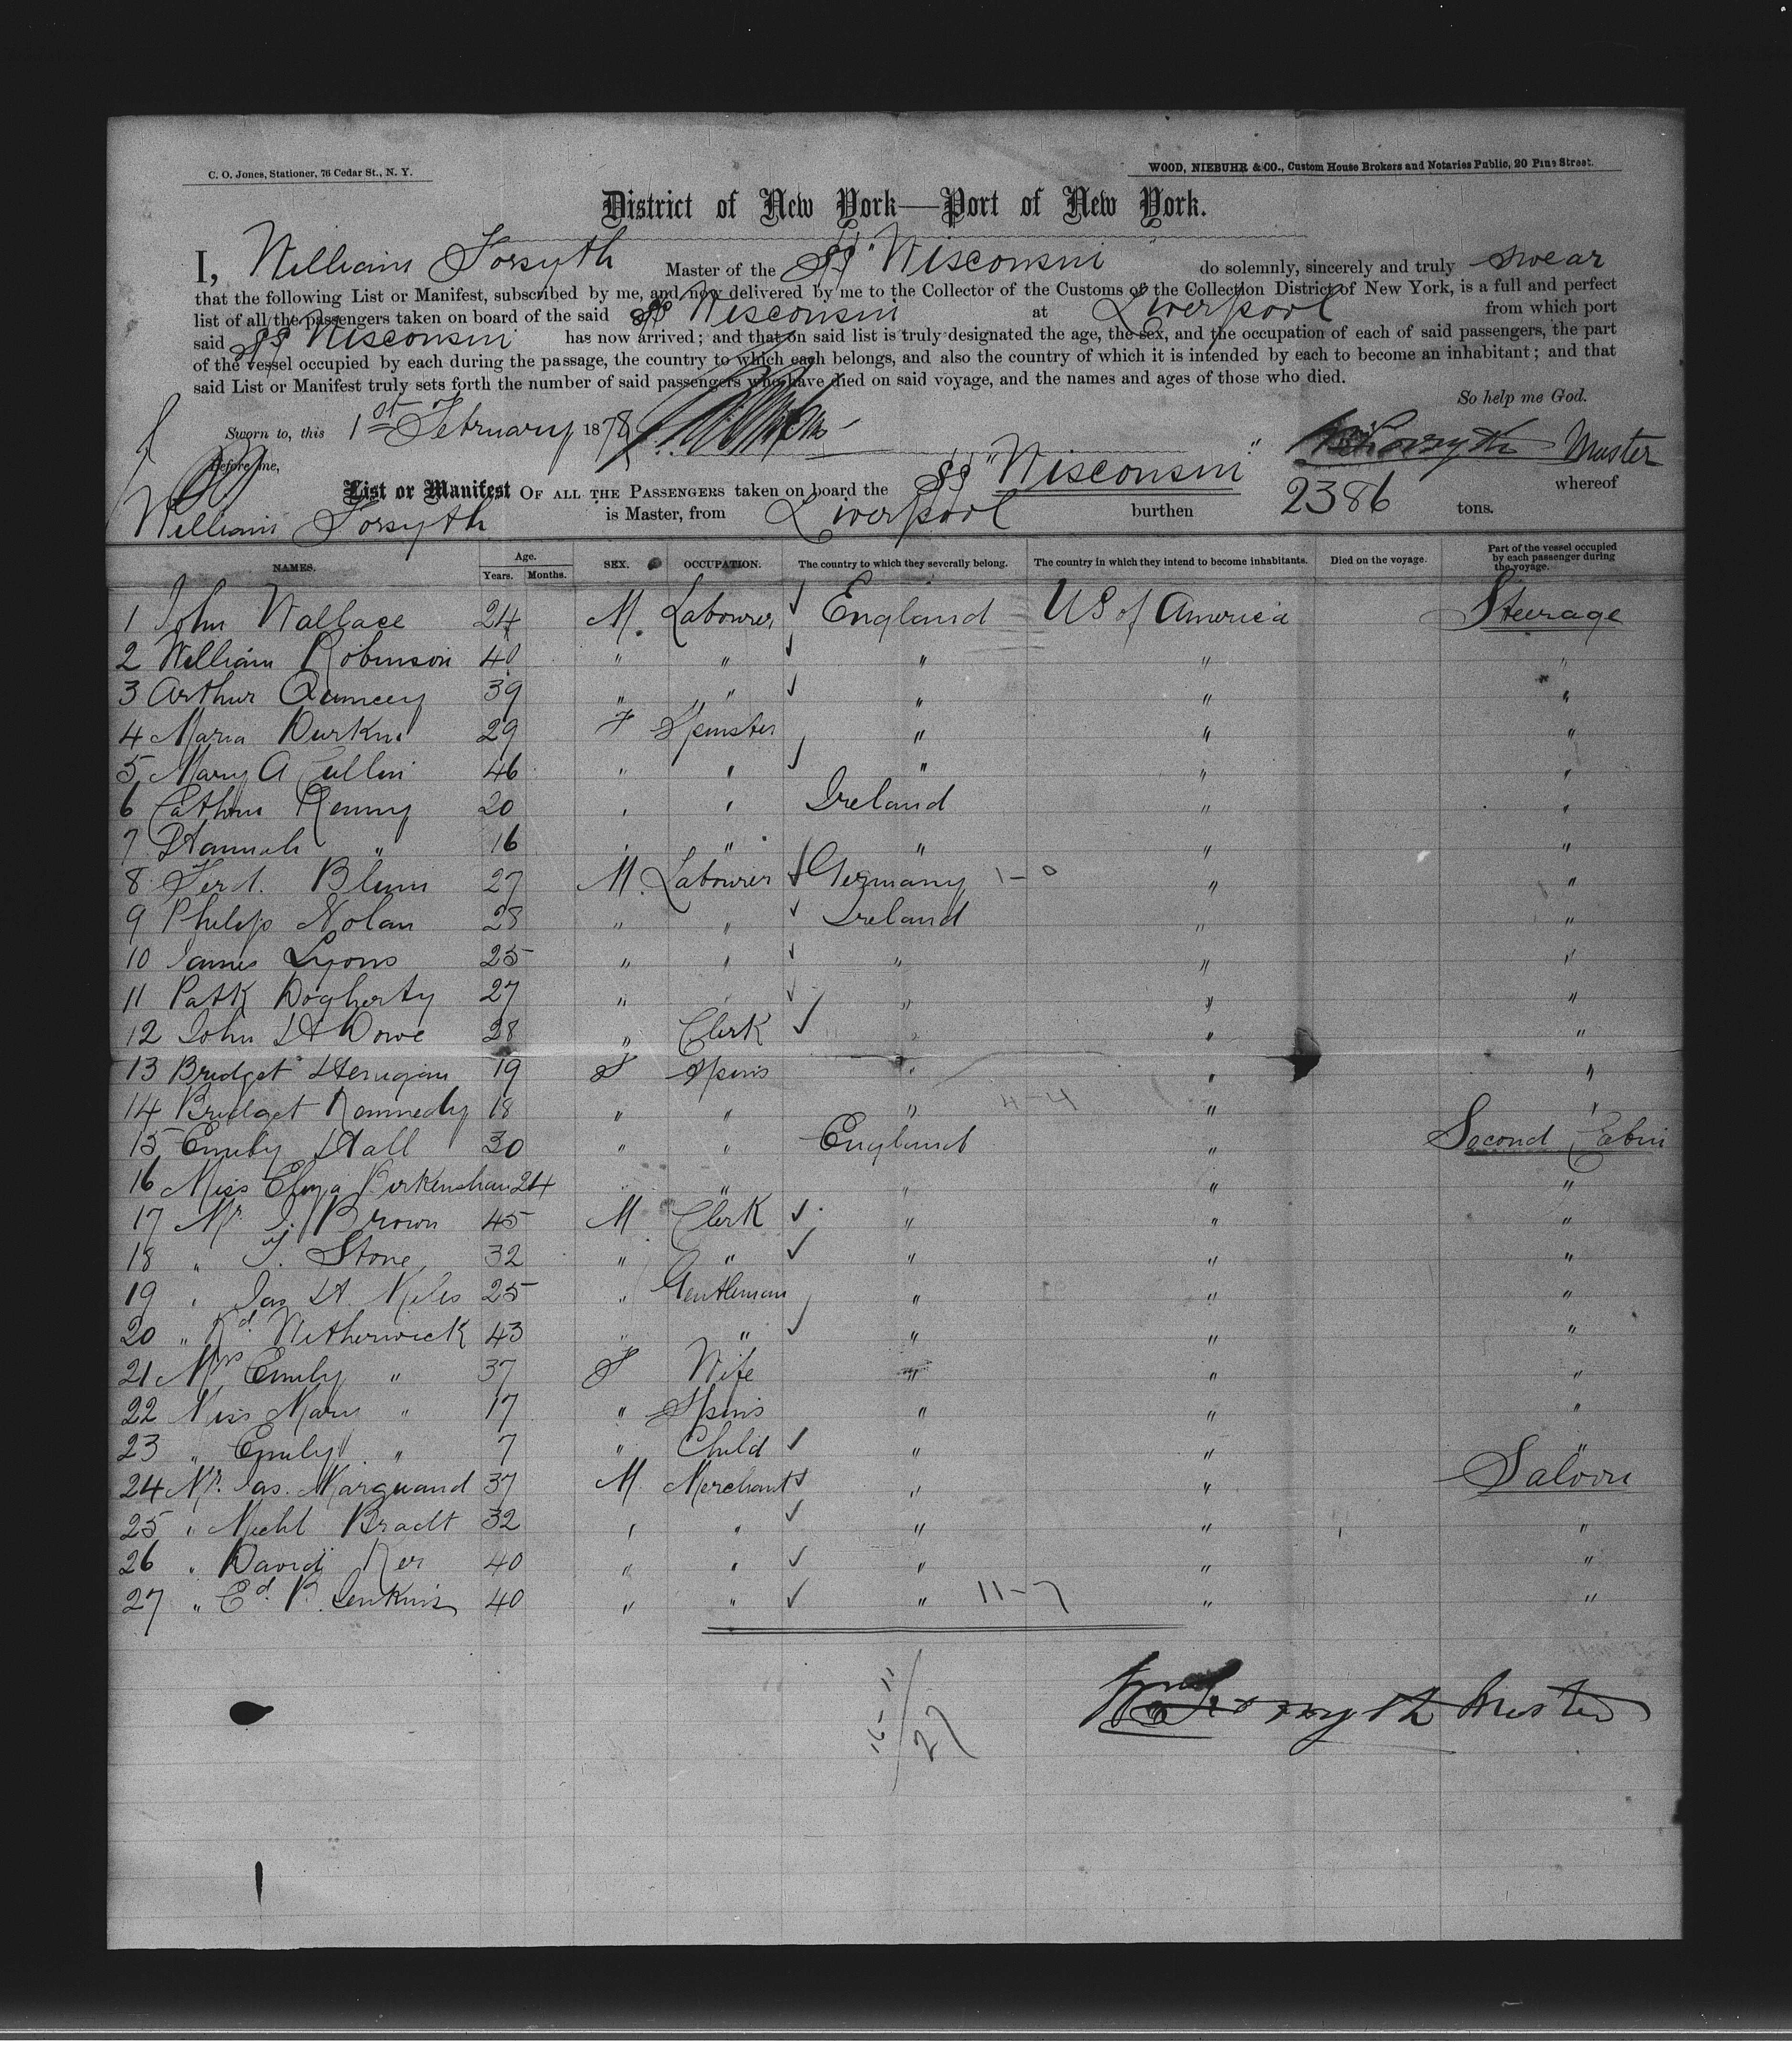 C. O. Jones, Stationer, 76 Cedar St., N. Y.
WOOD, NIEBUHR & CO., Custom House Brokers and Notaries Public, 20 Pine Street.
District of New York—Port of New York.
I, William Forsyth Master of the SS "Wisconsin" do solemnly, sincerely and truly swear
that the following List or Manifest, subscribed by me, and now delivered by me to the Collector of the Customs of the Collection District of New York, is a full and perfect
list of all the passengers taken on board of the said SS Wisconsin at Liverpool from which port
said SS Wisconsin has now arrived; and that on said list is truly designated the age, the sex, and the occupation of each of said passengers, the part
of the vessel occupied by each during the passage, the country to which each belongs, and also the country of which it is intended by each to become an inhabitant; and that
said List or Manifest truly sets forth the number of said passengers who have died on said voyage, and the names and ages of those who died.
So help me God.
Sworn to, this 1st February 1878
Wm Forsyth Master
Before me,
List or Manifest OF ALL THE PASSENGERS taken on board the SS "Wisconsin" whereof
William Forsyth is Master, from Liverpool burthen 2386 tons.
NAMES. Age. Years. Months. SEX. OCCUPATION. The country to which they severally belong. The country in which they intend to become inhabitants. Died on the voyage. Part of the vessel occupied by each passenger during the voyage.
1 John Wallace 24 M. Labourer England US of America Steerage
2 William Robinson 40 " " " " "
3 Arthur Quincey 39 " " " " "
4 Maria Durkin 29 F Spinster " " "
5 Mary A Cullen 46 " " " " "
6 Cathne Kenny 20 " " Ireland " "
7 Hannah " 16 " " " " "
8 Ferd. Blum 27 M. Labourer Germany 1-0 " "
9 Philip Nolan 28 " " Ireland " "
10 James Lyons 25 " " " " "
11 Patk Dogherty 27 " " " " "
12 John H Dowe 28 " Clerk " " "
13 Bridget Henigan 19 F Spins " " "
14 Bridget Kennedy 18 " " " 4-4 " "
15 Emily Hall 30 " " England " Second Cabin
16 Miss Eliza Birkenshaw 24 " " " " "
17 Mr J. Brown 45 M Clerk " " "
18 " T. Stone 32 " " " " "
19 " Jas H. Niles 25 " Gentleman " " "
20 " Rd. Netherwick 43 " " " " "
21 Mrs Emily " 37 F Wife " " "
22 Miss Mary " 17 " Spins " " "
23 " Emily " 7 " Child " " "
24 Mr. Jas. Marquand 37 M Merchant " " Saloon
25 " Michl Bradt 32 " " " " "
26 " David Ker 40 " " " " "
27 " Ed. B. Jenkins 40 " " " 11-7 " "
16-11
27
Wm Forsyth Master